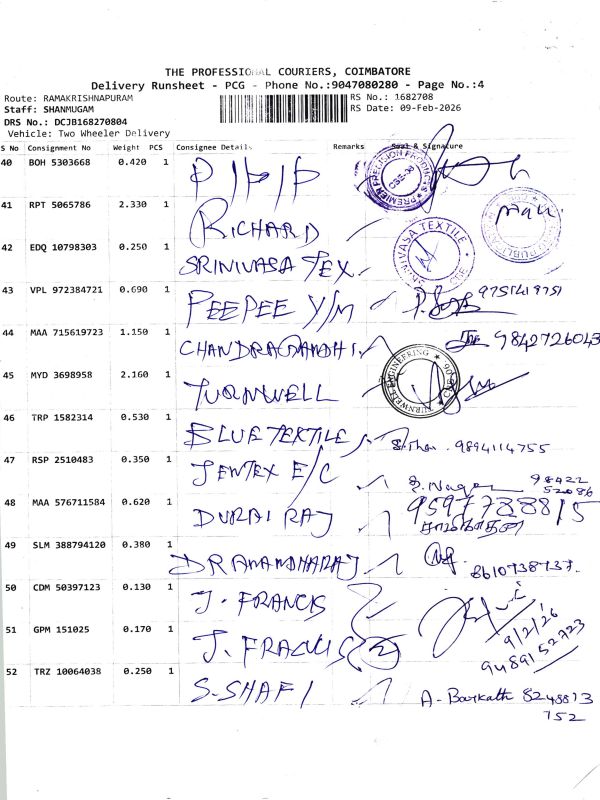 THE PROFESSIONAL COURIERS, COIMBATORE
Delivery Runsheet - PCG - Phone No.:9047080280 - Page No.:4
Route: RAMAKRISHNAPURAM
RS No.: 1682708
Staff: SHANMUGAM
RS Date: 09-Feb-2026
DRS No.: DCJB168270804
Vehicle: Two Wheeler Delivery
S No Consignment No Weight PCS Consignee Details Remarks Seal & Signature
40 BOH 5303668 0.420 1 P/P/P
41 RPT 5065786 2.330 1 RICHARD
42 EDQ 10798303 0.250 1 SRINIVASA TEX
43 VPL 972384721 0.690 1 PEEPEE Y/M 9751419751
44 MAA 715619723 1.150 1 CHANDRAGANDHI 9842726043
45 MYD 3698958 2.160 1 TURNWELL
46 TRP 1582314 0.530 1 BLUE TEXTILE 9894114755
47 RSP 2510483 0.350 1 JENTEX E/C 98422 52086
48 MAA 576711584 0.620 1 DURAI RAJ 9597788815
49 SLM 388794120 0.380 1 DR ANANDHARAJ 8610738737
50 CDM 50397123 0.130 1 J. FRANCIS
9/2/26
51 GPM 151025 0.170 1 J. FRANCIS (2) 9489152723
52 TRZ 10064038 0.250 1 S. SHAFI A. Barkath 8248813
152